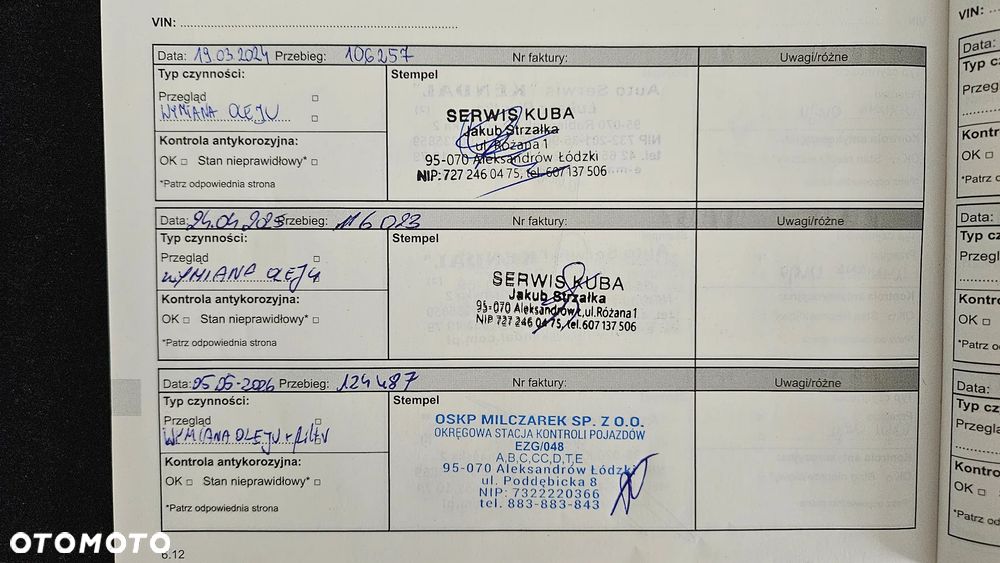 VIN:
Data: 19.03.2024 Przebieg: 106257 Nr faktury: Uwagi/różne
Typ czynności: Stempel
Przegląd
WYMIANA OLEJU
Kontrola antykorozyjna:
OK Stan nieprawidłowy*
*Patrz odpowiednia strona
SERWIS KUBA
Jakub Strzałka
ul. Różana 1
95-070 Aleksandrów Łódzki
NIP: 727 246 04 75, tel. 607 137 506
Data: 24.04.2025 Przebieg: 116023 Nr faktury: Uwagi/różne
Typ czynności: Stempel
Przegląd
WYMIANA OLEJU
Kontrola antykorozyjna:
OK Stan nieprawidłowy*
*Patrz odpowiednia strona
SERWIS KUBA
Jakub Strzałka
95-070 Aleksandrów Ł,ul.Różana 1
NIP 727 246 04 75, tel.607 137 506
Data: 05 05-2026 Przebieg: 124487 Nr faktury: Uwagi/różne
Typ czynności: Stempel
Przegląd
WYMIANA OLEJU + filtr
Kontrola antykorozyjna:
OK Stan nieprawidłowy*
*Patrz odpowiednia strona
OSKP MILCZAREK SP. Z O.O.
OKRĘGOWA STACJA KONTROLI POJAZDÓW
EZG/048
A,B,C,CC,D,T,E
95-070 Aleksandrów Łódzki
ul. Poddębicka 8
NIP: 7322220366
tel. 883-883-843
6.12
OTOMOTO
VIN:
Data:
Kontro
OK
*Patrz o
Data:
Typ cz
Przeglą
Kontro
OK
*Patrz o
Data:
Typ cz
Przeglą
Kontro
OK
*Patrz o